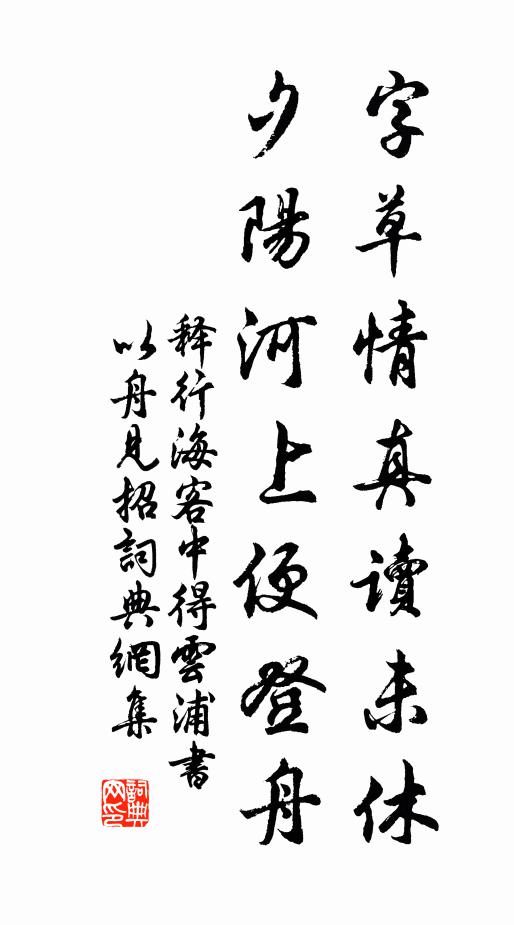 字草情真讀未休
夕陽河上便登舟
释行海客中得雲浦書
以舟見招詞典網集
詞典網印